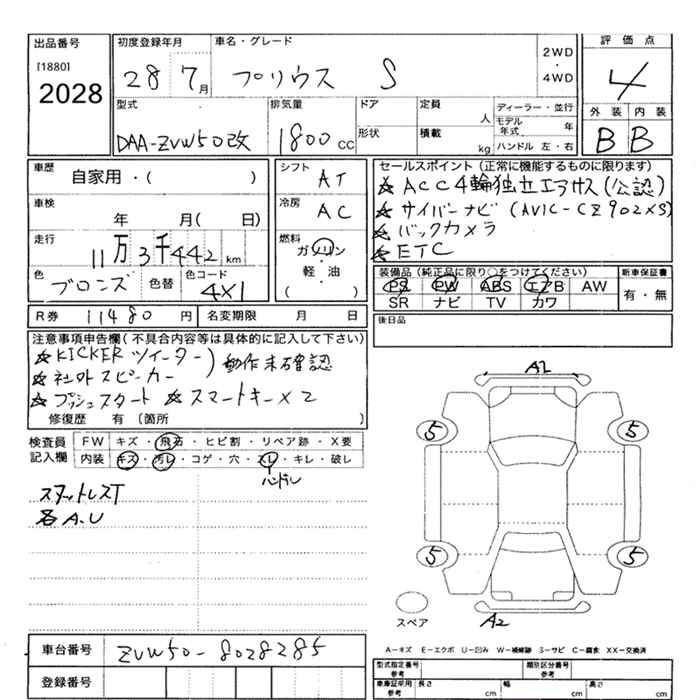 出品番号 初度登録年月 車名・グレード 評価点
[1880] 2028 28 7月 プリウス S 2WD・4WD 4
型式 排気量 ドア 定員 人 ディーラー・並行 外装 内装
DAA-ZVW50改 1800CC 形状 積載 kg モデル年式 年 B B
ハンドル 左・右
車歴 シフト セールスポイント(正常に機能するものに限ります)
自家用・( ) AT ☆ACC4輪独立エアサス(公認)
車検 冷房 ☆サイバーナビ(AVIC-CZ902XS)
年 月( 日) AC ☆バックカメラ
走行 燃料 ☆ETC
11万3千442km ガソリン
色 色替 色コード 軽・油 装備品(純正品に限り○をつけてください) 新車保証書
ブロンズ 4X1 ( ) PS PW ABS エアB AW 有・無
SR ナビ TV カワ
R券 11480円 名変期限 月 日 後日品
注意事項申告欄(不具合内容等は具体的に記入して下さい)
☆KICKERツイーター)動作未確認
☆社外スピーカー
☆プッシュスタート ☆スマートキー×2
修復歴 有〔箇所 〕
検査員記入欄 FW キズ・飛石・ヒビ割・リペア跡・X要
内装 キズ・汚レ・コゲ・穴・スレ・キレ・破レ
ハンドル
スタットレスT
各A.U
A1
5 5
5 5
スペア A2
A-キズ E-エクボ U-凹み W-補修跡 S-サビ C-腐食 XX-交換済
車台番号 ZVW50-8028285
登録番号
型式指定番号 参考 類別区分番号 参考
車庫証明用 参考 長さ cm 幅 cm 高さ cm